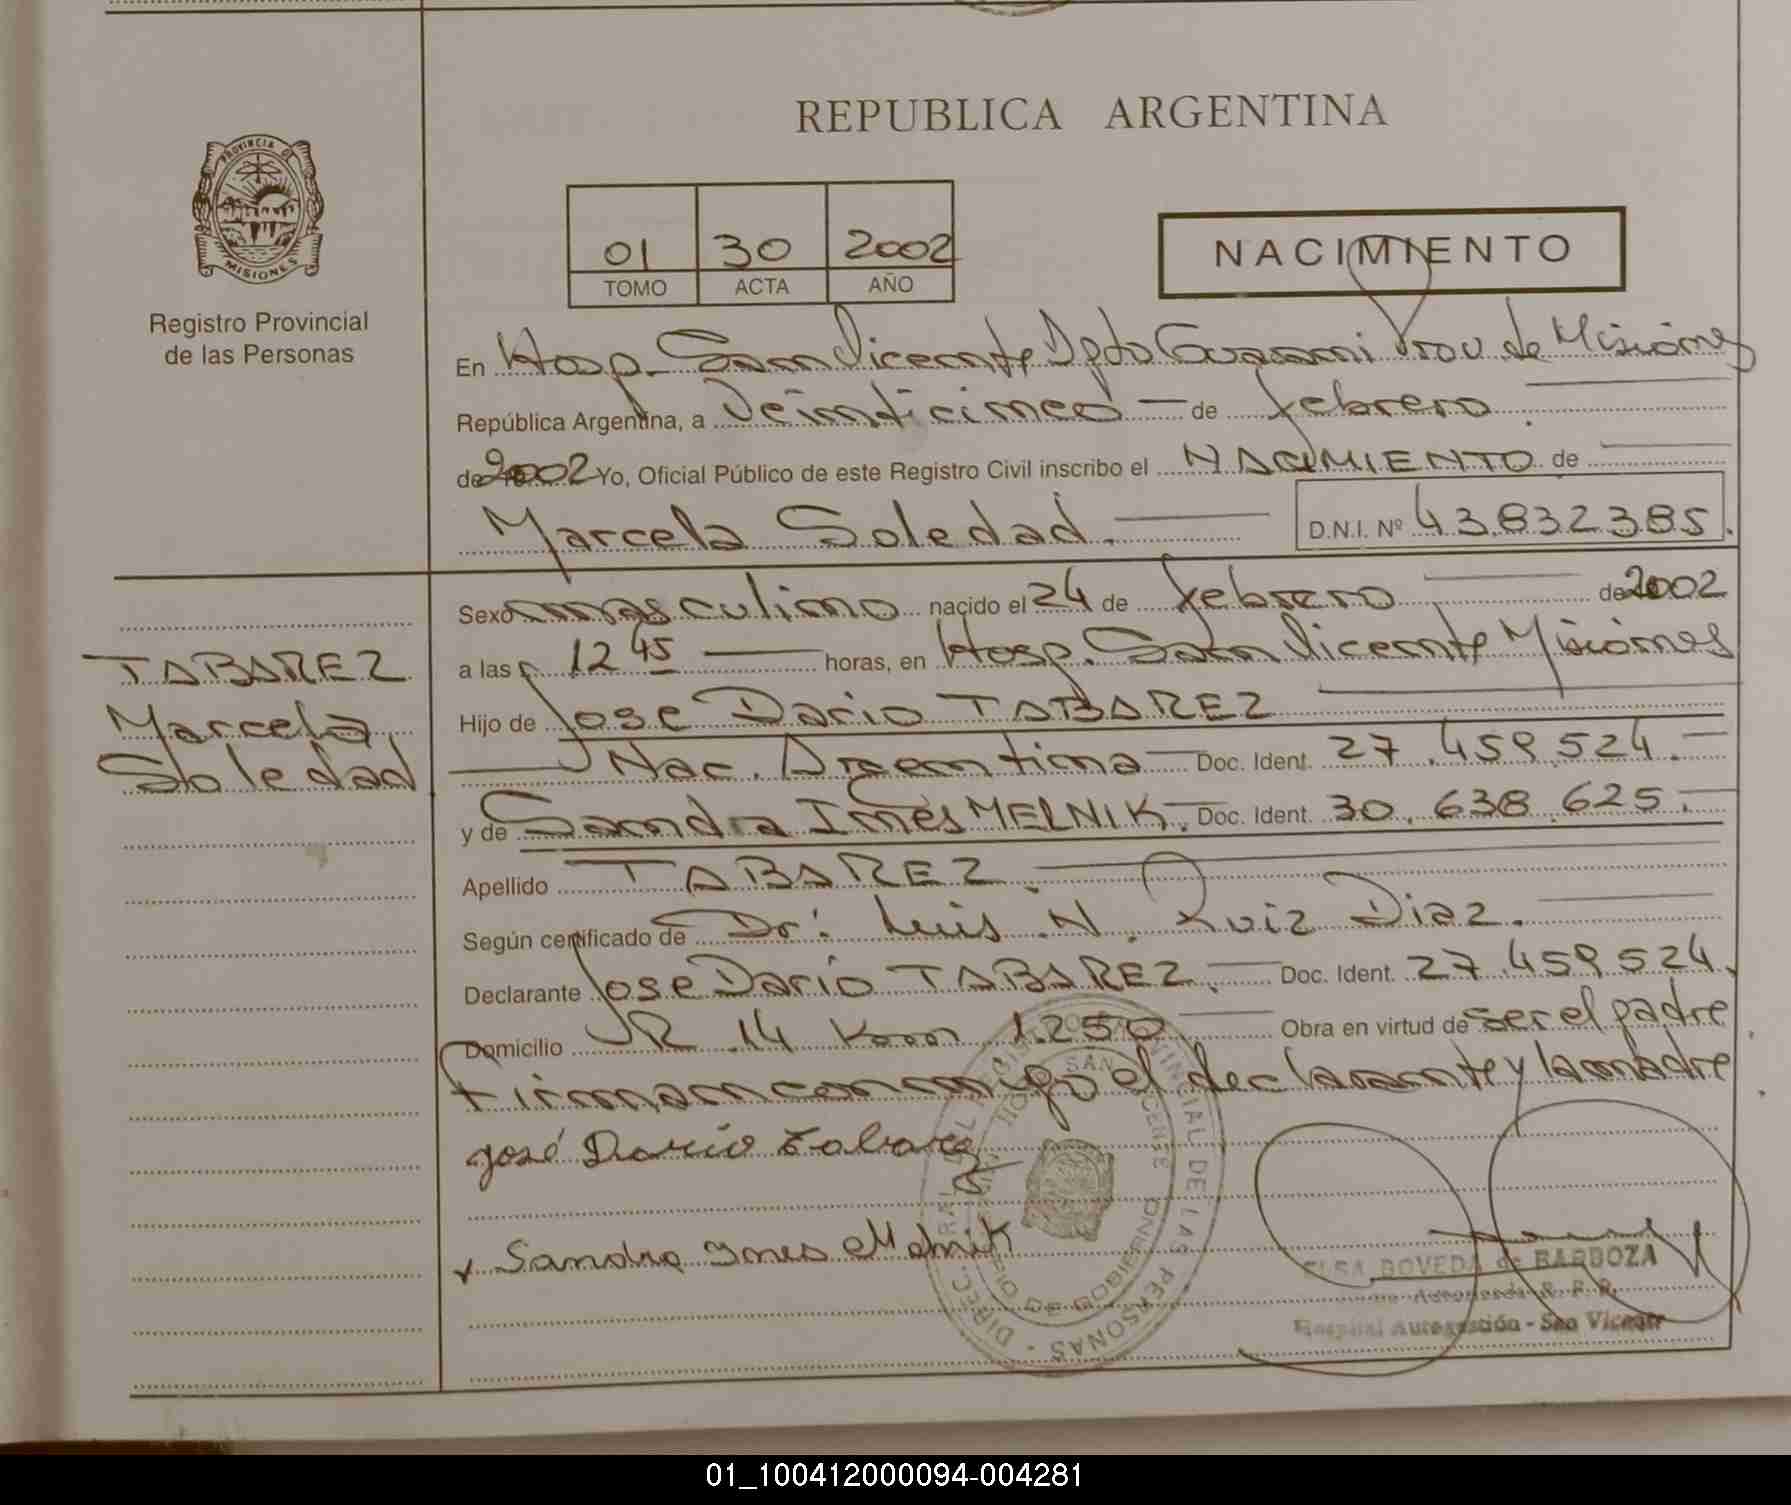 REPUBLICA ARGENTINA
PROVINCIA DE
MISIONES
Registro Provincial
de las Personas
01 30 2002
TOMO ACTA AÑO
NACIMIENTO
En Hosp. San Vicente Dpto Guarani Prov. de Misiónes
República Argentina, a Veinticinco — de febrero
de 2002 Yo, Oficial Público de este Registro Civil inscribo el NACIMIENTO de
Marcela Soledad. D.N.I. Nº 43.832.385.
Sexo masculino nacido el 24 de febrero de 2002
a las 12 45 horas, en Hosp. San Vicente Misiónes
Hijo de Jose Dario TABAREZ
Nac. Argentina — Doc. Ident. 27.459.524.
y de Sandra Inés MELNIK. Doc. Ident. 30.638.625.
Apellido TABAREZ.
Según certificado de Dr: Luis N. Ruiz Diaz.
Declarante Jose Dario TABAREZ. Doc. Ident. 27.459.524.
Domicilio R. 14 Km 1.250 Obra en virtud de ser el padre
Firman conmigo el declarante y la madre
José Dario Tabarez
Sandra Ines Melnik
TABAREZ
Marcela
Soledad
DIREC. GRAL. DEL REGISTRO PROVINCIAL DE LAS PERSONAS
SAN VICENTE
ELSA BOVEDA de BARBOZA
Hospital Autogestión - San Vicente
01_100412000094-004281